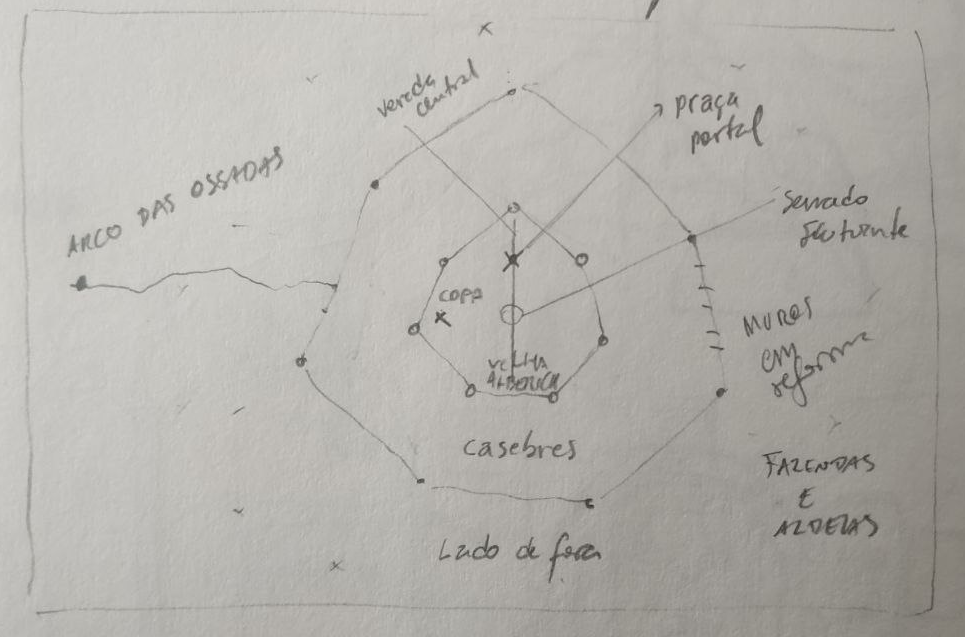 vereda
central
praça
portal
ARCO DAS OSSADAS
flutuante
COPA
MUROS
em
reforma
VELHA
casebres
FAZENDAS
E
ALDEIAS
Lado de fora